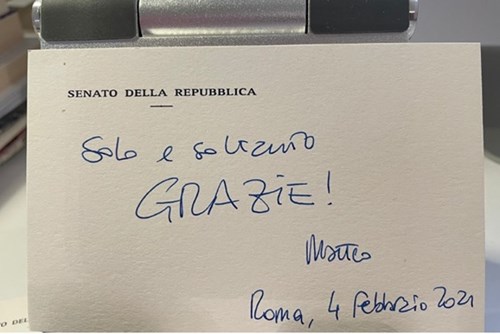 SENATO DELLA REPUBBLICA
Solo e soltanto
GRAZIE!
Matteo
Roma, 4 febbraio 2021
NATO DEL